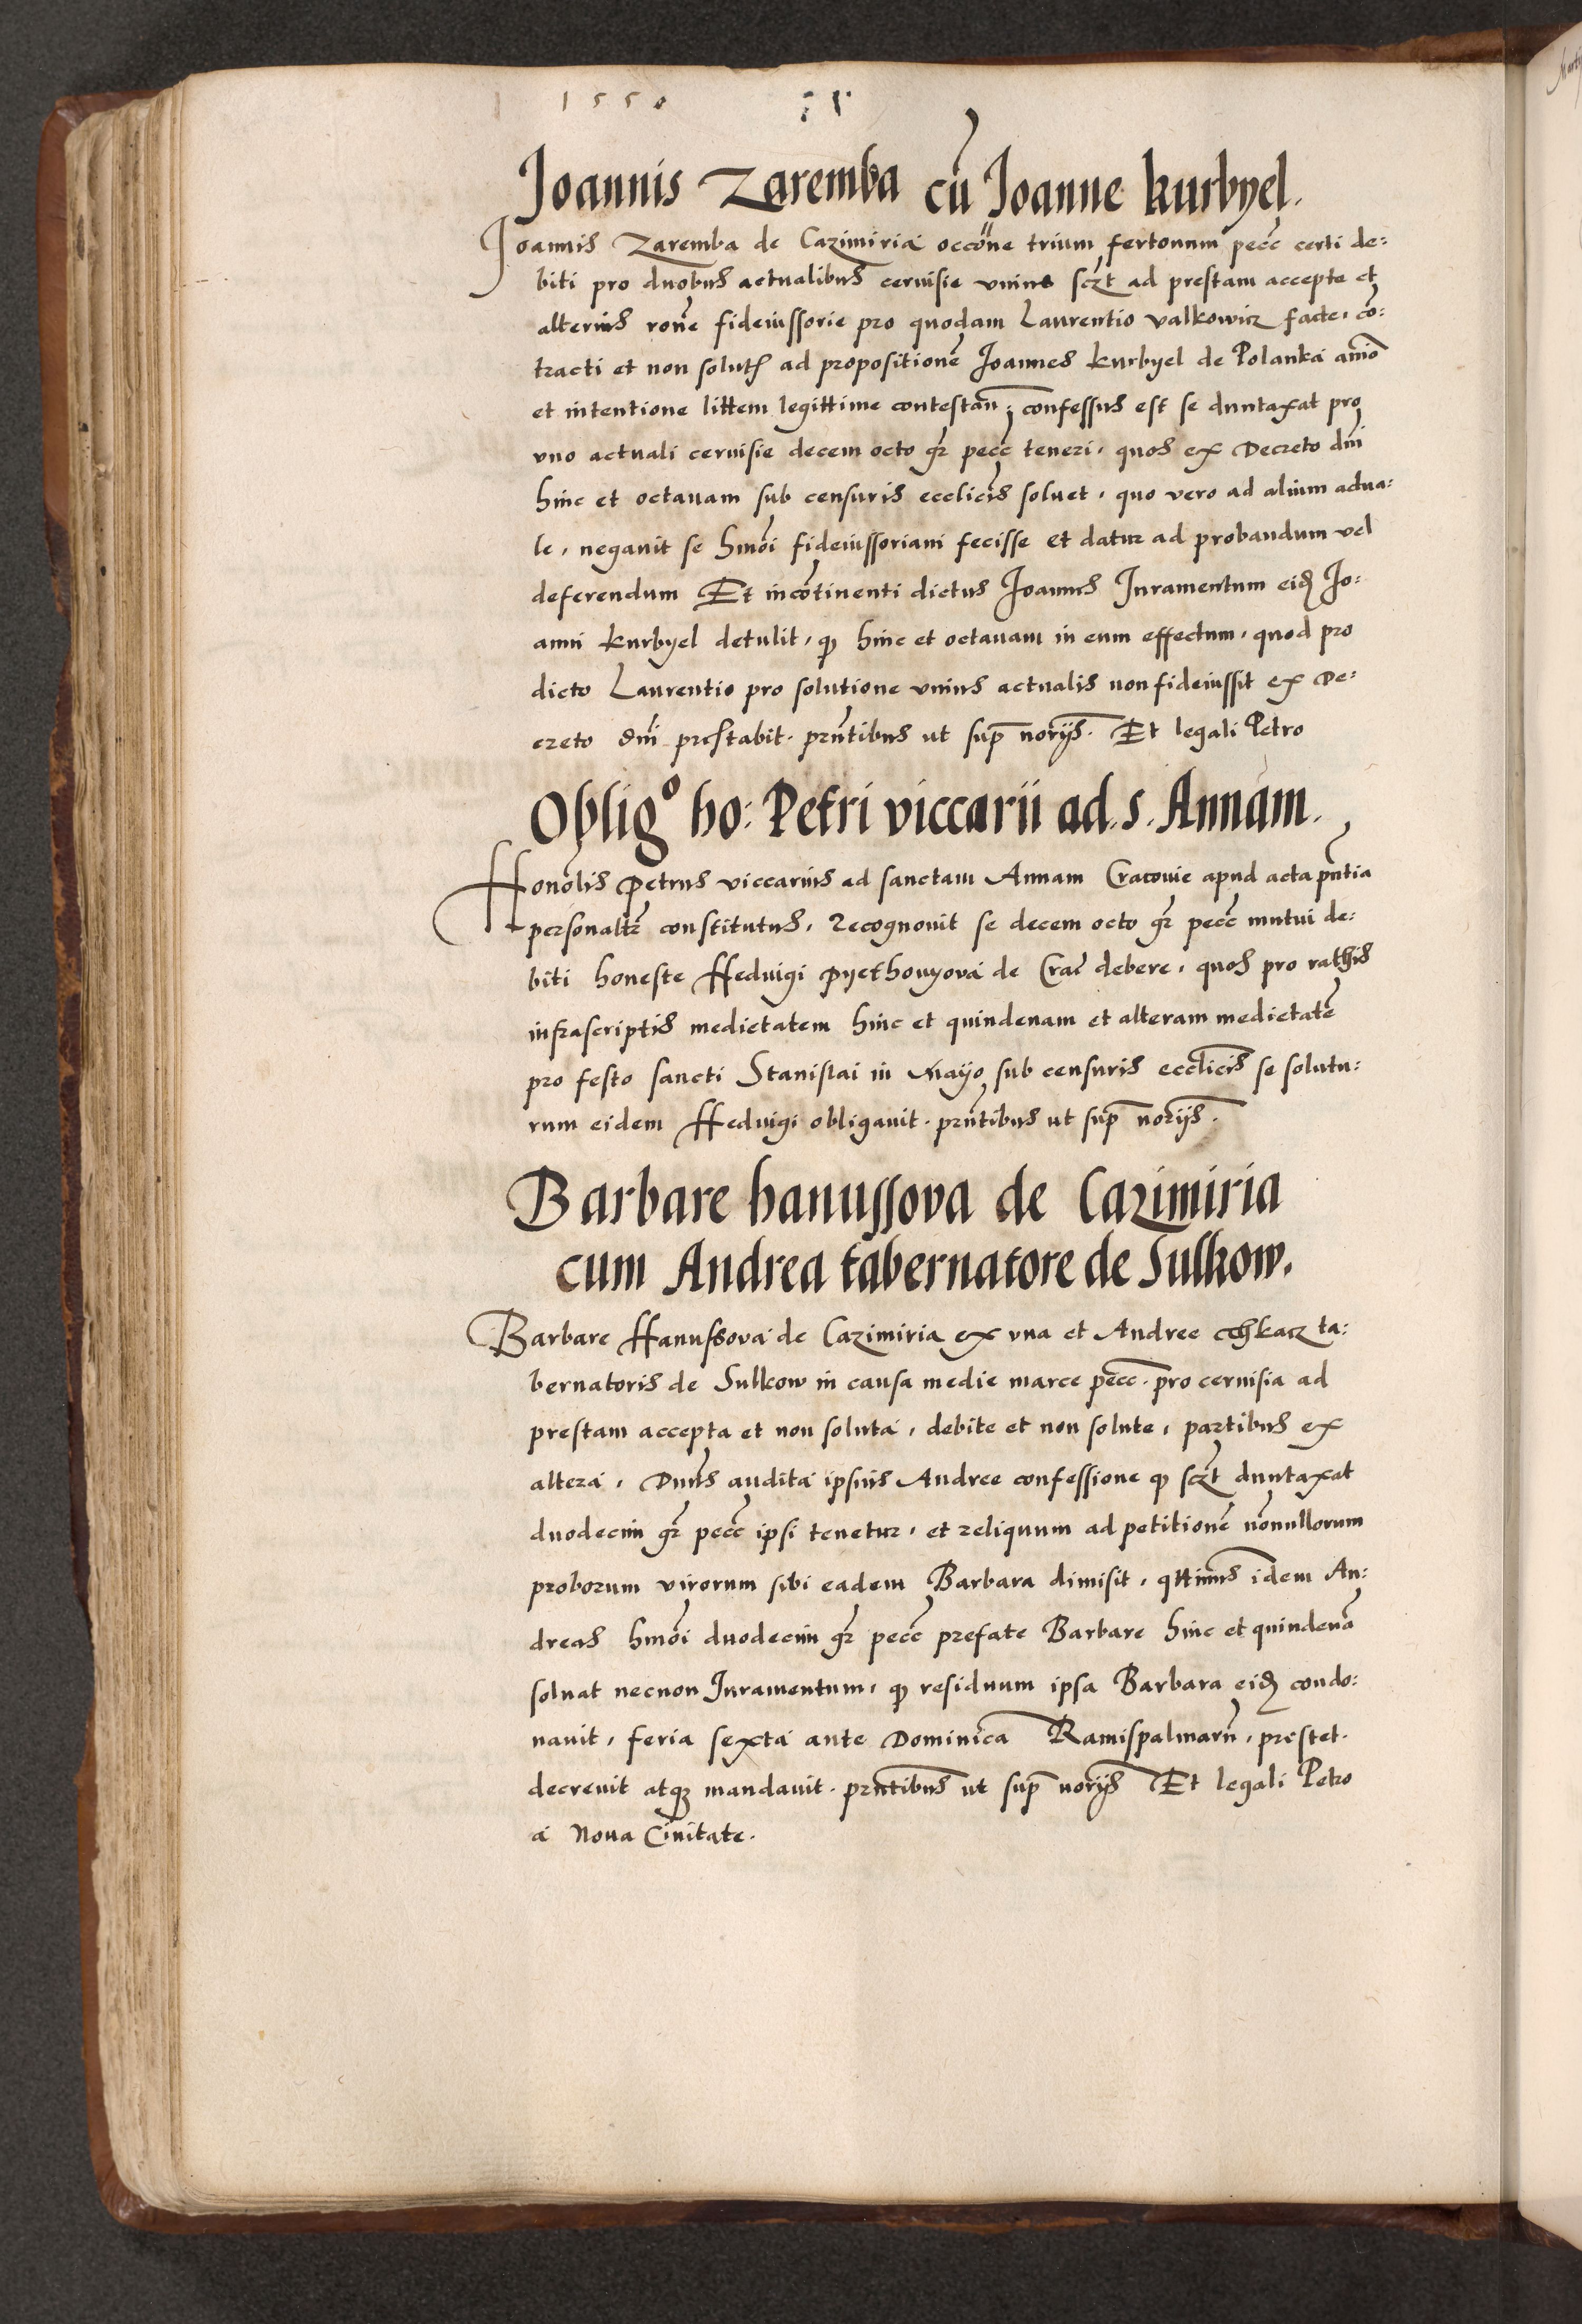 1550
Joannis Zaremba cū Joanne kurbyel.
Joannis Zaremba de Cazimiria occōne trium fertonum pecē certi de:
biti pro duobus actualibus ceruisie vnius sczt ad prestam accepte et
alterius rōne fideiussorie pro quodam Laurentio valkowicz facte, cō:
tracti et non soluti ad propositionē Joannes kurbyel de Polanka animo
et intentione littem legittime contestan̄: confessus est se duntaxat pro
vno actuali ceruisie decem octo gr̄ pecē teneri, quos ex Decreto dn̄i
hinc et octauam sub censuris eccl̄icis soluet, quo vero ad alium actua:
le, negauit se hmōi fideiussoriam fecisse et datur ad probandum vel
deferendum Et incōtinenti dictus Joannes Juramentum eid̄ Jo:
anni kurbyel detulit, qd̄ hinc et octauam in eum effectum, quod pro
dicto Laurentio pro solutione vnius actualis non fideiussit ex De:
creto dn̄i prestabit. prn̄tibus ut sup̄ nor̄ijs. Et legali Petro
Obligo ho: Petri viccarii ad. s. Annam.
Honōlis Petrus viccarius ad sanctam Annam Cracouie apud acta pn̄tia
personaltr̄ constitutus, Recognouit se decem octo gr̄ pecē mutui de:
biti honeste Heduigi Pyethonyova de Crac̄ debere, quos pro rathis
infrascriptis medietatem hinc et quindenam et alteram medietatē
pro festo sancti Stanislai in Mayo sub censuris eccl̄icis se solutu:
rum eidem Heduigi obligauit. prn̄tibus ut sup̄ nor̄ijs.
Barbare hanussova de Cazimiria
cum Andrea tabernatore de Sulkow.
Barbare Hanussova de Cazimiria ex vna et Andree cchkacz ta:
bernatoris de Sulkow in causa medie marce pecē. pro ceruisia ad
prestam accepta et non soluta, debite et non solute, partibus ex
altera, Dn̄us audita ipsius Andree confessione qd̄ sczt duntaxat
duodecim gr̄ pecē ipsi tenetur, et reliquum ad petitionē nōnullorum
proborum virorum sibi eadem Barbara dimisit, qttinus idem An:
dreas hmōi duodecim gr̄ pecē prefate Barbare hinc et quindenā
soluat necnon Juramentum, qd̄ residuum ipsa Barbara eid̄ condo:
nauit, feria sexta ante Dominicā Ramispalmarū, prestet.
decreuit atq3 mandauit. prn̄tibus ut sup̄ nor̄ijs Et legali Petro
a Noua Ciuitate.